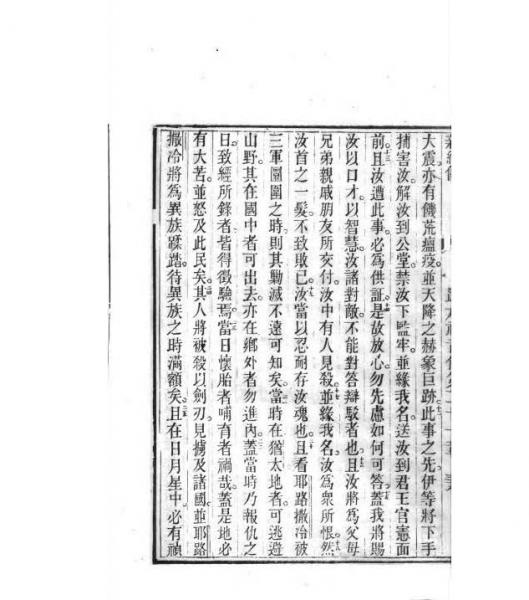 大震亦有饑荒瘟疫並天降之赫象巨跡此事之先伊等將下手
捕害汝解汝到公堂禁汝下監牢並緣我名送汝到君王官憲面
前且汝遭此事必爲供証是故放心勿先慮如何可答蓋我將賜
汝以口才以智慧汝諸對敵不能對答辯駁者也且汝將爲父母
兄弟親戚朋友所交付汝中有人見殺並緣我名汝爲衆所恨然
汝首之一髮不致敗已汝當以忍耐存汝魂也且看耶路撒冷被
三軍圍圍之時則其勦滅不遠可知矣當時在猶太地者可逃避
山野其在國中者可出去亦在鄉處者勿進內蓋當時乃報仇之
日致經所錄者皆得徵驗焉當日懷胎者哺有者禍哉蓋是地必
有大苦並怒及此民矣其人將被殺以劍刃見擄及諸國並耶路
撒冷將爲異族蹂踏待異族之時滿額矣且在日月星中必有禎